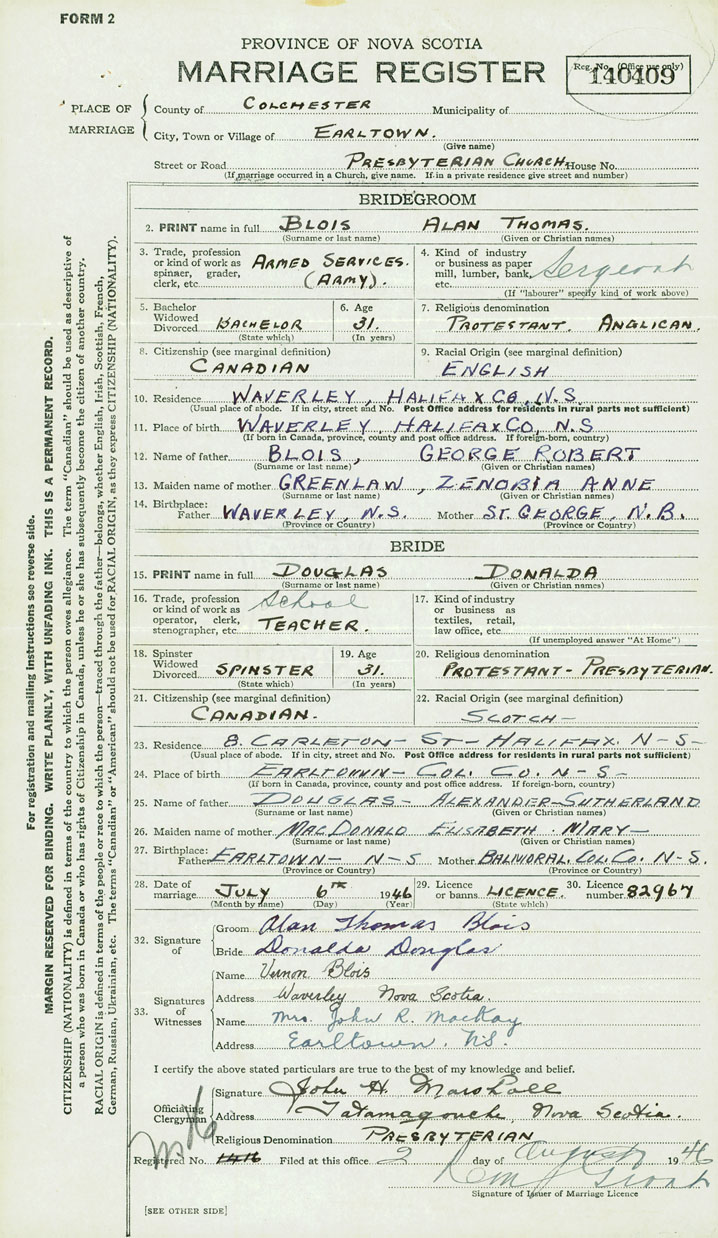 FORM 2
PROVINCE OF NOVA SCOTIA
MARRIAGE REGISTER
Reg. No. (Office use only)
140409
PLACE OF MARRIAGE
County of COLCHESTER Municipality of
City, Town or Village of EARLTOWN.
(Give name)
Street or Road PRESBYTERIAN CHURCH. House No.
(If marriage occurred in a Church, give name. If in a private residence give street and number)
BRIDEGROOM
2. PRINT name in full BLOIS ALAN THOMAS.
(Surname or last name) (Given or Christian names)
3. Trade, profession or kind of work as spinner, grader, clerk, etc. ARMED SERVICES. (ARMY).
4. Kind of industry or business as paper mill, lumber, bank, etc. Sergeant
(If "labourer" specify kind of work above)
5. Bachelor Widowed Divorced BACHELOR
(State which)
6. Age 31.
(In years)
7. Religious denomination
PROTESTANT. ANGLICAN.
8. Citizenship (see marginal definition)
CANADIAN
9. Racial Origin (see marginal definition)
ENGLISH
10. Residence WAVERLEY, HALIFAX CO. N.S.
(Usual place of abode. If in city, street and No. Post Office address for residents in rural parts not sufficient)
11. Place of birth WAVERLEY, HALIFAX CO, N.S
(If born in Canada, province, county and post office address. If foreign-born, country)
12. Name of father BLOIS, GEORGE ROBERT
(Surname or last name) (Given or Christian names)
13. Maiden name of mother GREENLAW, ZENOBIA ANNE
(Surname or last name) (Given or Christian names)
14. Birthplace: Father WAVERLEY, N.S. Mother ST. GEORGE, N.B.
(Province or Country) (Province or Country)
BRIDE
15. PRINT name in full DOUGLAS DONALDA
(Surname or last name) (Given or Christian names)
16. Trade, profession or kind of work as operator, clerk, stenographer, etc. School TEACHER.
17. Kind of industry or business as textiles, retail, law office, etc.
(If unemployed answer "At Home")
18. Spinster Widowed Divorced SPINSTER
(State which)
19. Age 31.
(In years)
20. Religious denomination
PROTESTANT - PRESBYTERIAN.
21. Citizenship (see marginal definition)
CANADIAN.
22. Racial Origin (see marginal definition)
SCOTCH -
23. Residence 8. CARLETON - ST - HALIFAX. N - S -
(Usual place of abode. If in city, street and No. Post Office address for residents in rural parts not sufficient)
24. Place of birth EARLTOWN - COL. CO. N - S -
(If born in Canada, province, county and post office address. If foreign-born, country)
25. Name of father DOUGLAS - ALEXANDER - SUTHERLAND
(Surname or last name) (Given or Christian names)
26. Maiden name of mother MACDONALD ELISABETH. MARY -
(Surname or last name) (Given or Christian names)
27. Birthplace: Father EARLTOWN - N - S Mother BALMORAL. COL. CO. N - S.
(Province or Country) (Province or Country)
28. Date of marriage JULY 6TH 1946
(Month by name) (Day) (Year)
29. Licence or banns LICENCE.
(State which)
30. Licence number 82967
32. Signature of
Groom Alan Thomas Blois
Bride Donalda Douglas
33. Signatures of Witnesses
Name Vernon Blois
Address Waverley Nova Scotia.
Name Mrs. John R. MacKay
Address Earltown. N.S.
I certify the above stated particulars are to the best of my knowledge and belief.
Officiating Clergyman
Signature John H. Marshall
Address Tatamagouche, Nova Scotia.
Religious Denomination PRESBYTERIAN
Registered No. Filed at this office 2 day of August 1946
Signature of Issuer of Marriage Licence
[SEE OTHER SIDE]
For registration and mailing instructions see reverse side.
MARGIN RESERVED FOR BINDING. WRITE PLAINLY, WITH UNFADING INK. THIS IS A PERMANENT RECORD.
CITIZENSHIP (NATIONALITY) is defined in terms of the country to which the person owes allegiance. The term "Canadian" should be used as descriptive of
a person who was born in Canada or who has rights of Citizenship in Canada, unless he or she has subsequently become the citizen of another country.
RACIAL ORIGIN is defined in terms of the people or race to which the person—traced through the father—belongs, whether English, Irish, Scottish, French,
German, Russian, Ukrainian, etc. The terms "Canadian" or "American" should not be used for RACIAL ORIGIN, as they express CITIZENSHIP (NATIONALITY).